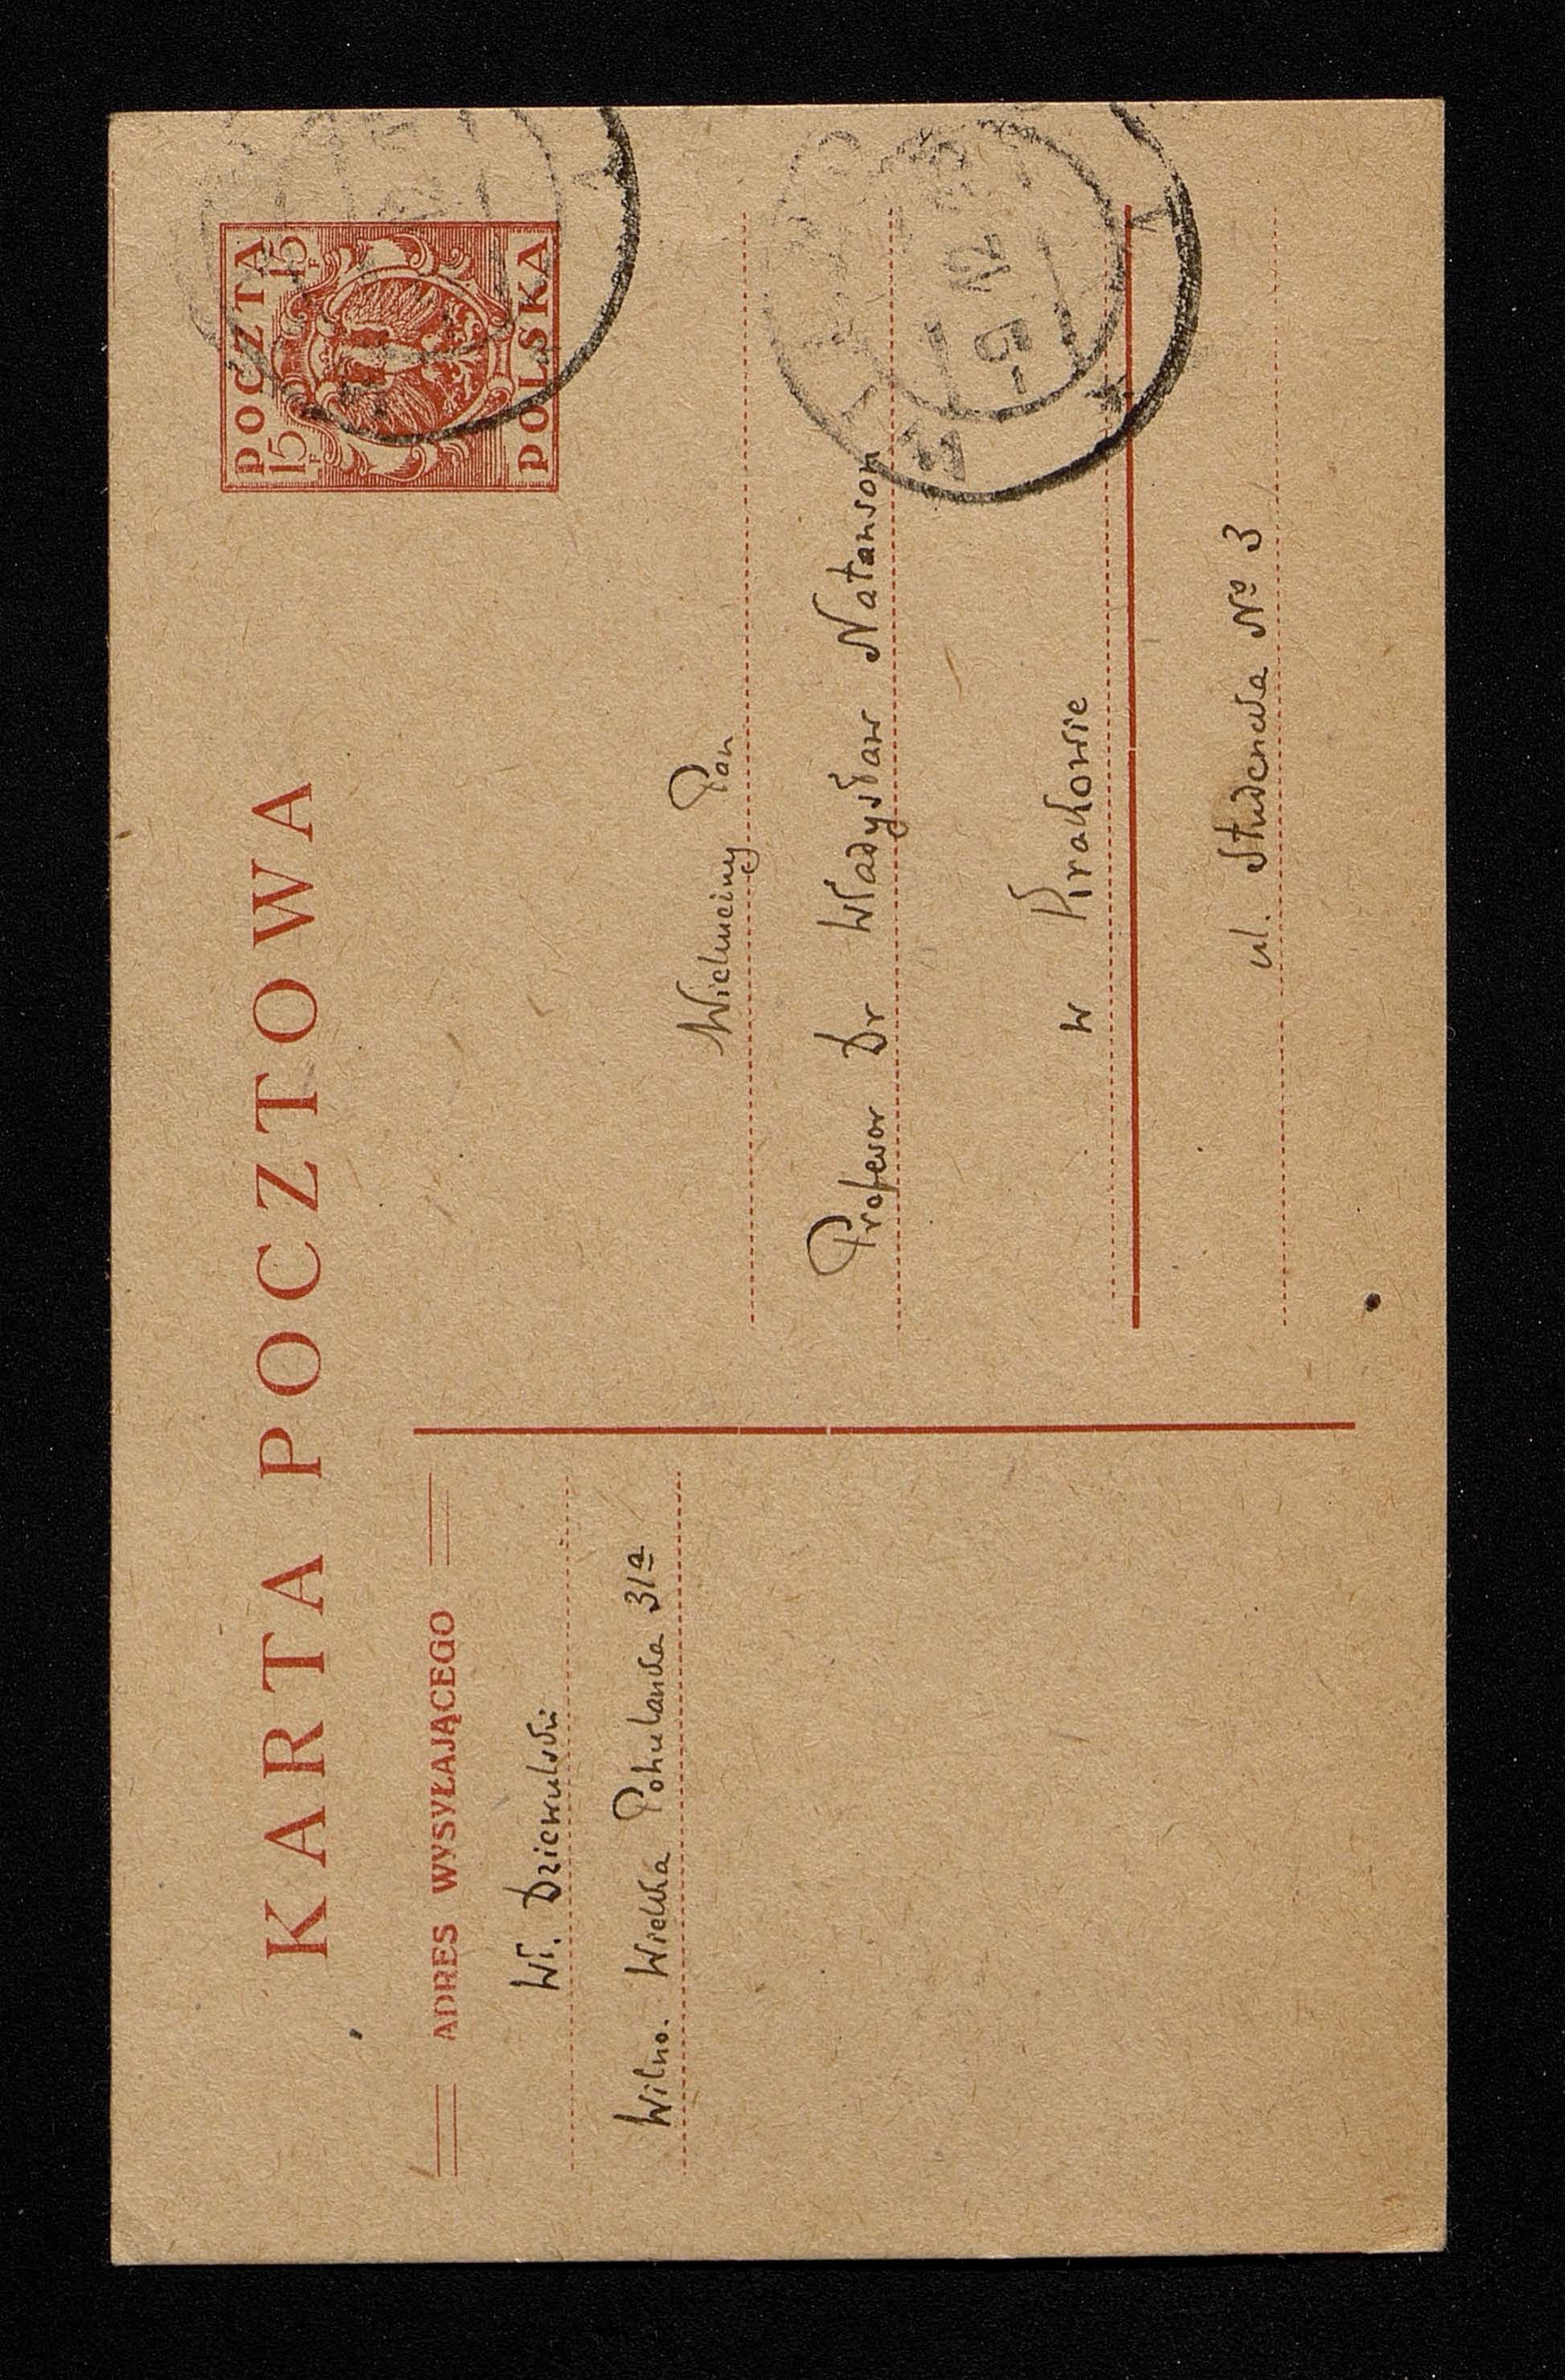 KARTA POCZTOWA
POCZTA
15 15
POLSKA
ADRES WYSYŁAJĄCEGO
Wł. Dziewulski
Wilno. Wielka Pohulanka 31a
Wielmożny Pan
Profesor Dr Władysław Natanson
w Krakowie
ul. Studencka No 3